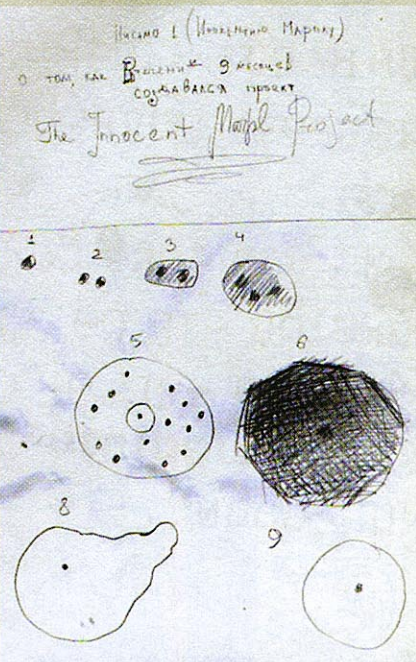 Письмо 1 (Иннокентию Марплу)
о том, как В течении 9 месяцев
создавался проект
The Innocent Marpl Project
1 2 3 4
5 6
8 9